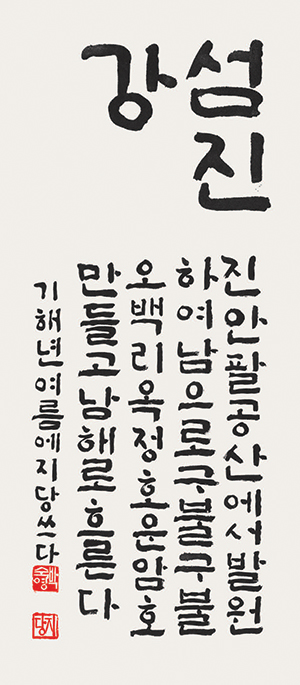 섬진
강
진안팔공산에서발원
하여남으로구불구불
오백리옥정호운암호
만들고남해로흐른다
기해년여름에지당쓰다
지당